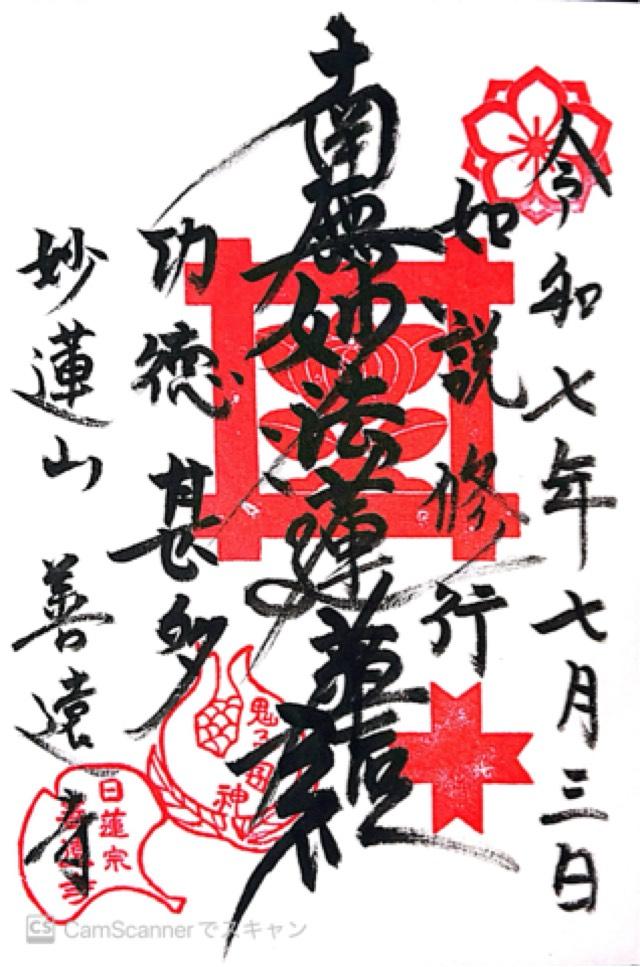 令和七年七月三日
如説修行
南無妙法蓮華経
功徳甚多
妙蓮山 善遠寺
鬼子母神
日蓮宗
善遠寺
CS CamScannerでスキャン